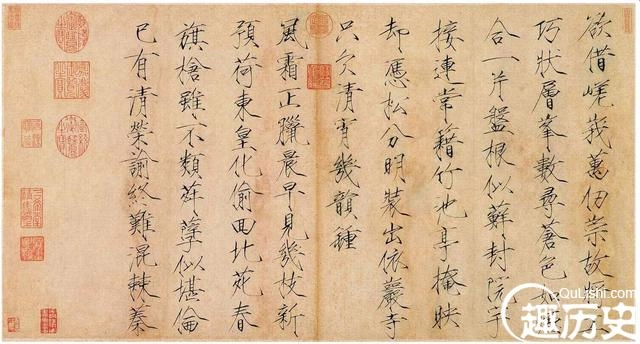 欲借嵯峨萬仞崇故將
巧狀層峯數尋蒼色如
合一片盤根似蘚封院宇
接連常藉竹池亭掩映
却憑松分明裝出依巖寺
只欠清宵幾韻種
風霜正臘晨早見幾枝新
預荷東皇化偷回北苑春
旗槍雖不類荈孽似堪倫
已有清榮諭終難混棘蓁
QuLiShi.com
趣历史